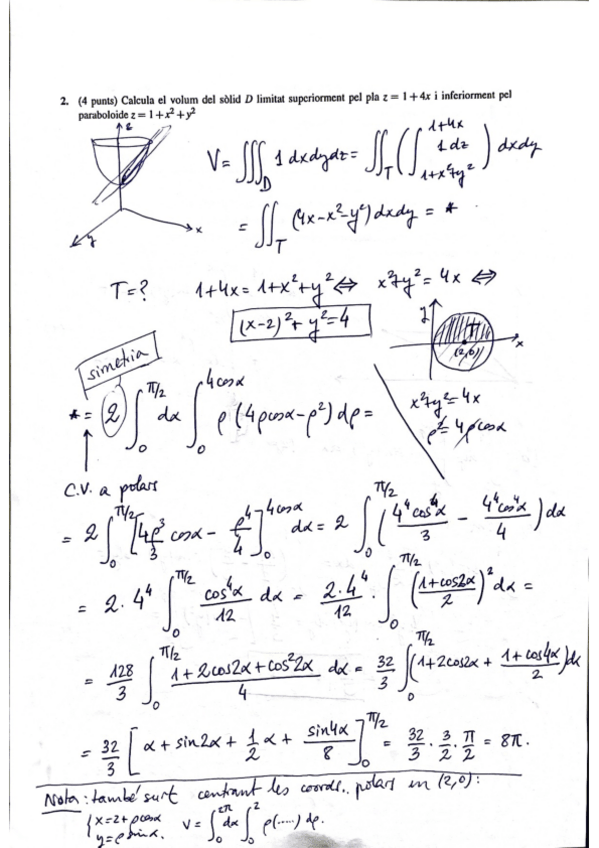 2. (4 punts) Calcula el volum del sòlid D limitat superiorment pel pla z = 1 + 4x i inferiorment pel
paraboloide z = 1 + x² + y²
z
x
y
V = ∭_D 1 dxdydz = ∬_T (∫_{1+x²+y²}^{1+4x} 1 dz) dxdy
= ∬_T (4x-x²-y²) dxdy = *
T=? 1+4x = 1+x²+y² ⇔ x²+y² = 4x ⇔
(x-2)²+y²=4
y
T
(2,0)
x
simetria
* = 2 ∫_0^{π/2} dα ∫_0^{4cosα} ρ (4ρcosα-ρ²) dρ =
x²+y² = 4x
ρ² = 4ρcosα
C.V. a polars
= 2 ∫_0^{π/2} [4ρ³/3 cosα - ρ⁴/4]_0^{4cosα} dα = 2 ∫_0^{π/2} (4⁴cos⁴α/3 - 4⁴cos⁴α/4) dα
= 2·4⁴ ∫_0^{π/2} cos⁴α/12 dα = 2·4⁴/12 · ∫_0^{π/2} ((1+cos2α)/2)² dα =
= 128/3 ∫_0^{π/2} (1+2cos2α+cos²2α)/4 dα = 32/3 ∫_0^{π/2} (1+2cos2α + (1+cos4α)/2) dα
= 32/3 [α + sin2α + 1/2 α + sin4α/8]_0^{π/2} = 32/3 · 3/2 · π/2 = 8π.
Nota: també surt centrant les coords. polars en (2,0):
{x=2+ρcosα
y=ρsinα. V = ∫_0^{2π} dα ∫_0^2 ρ(.....) dρ.